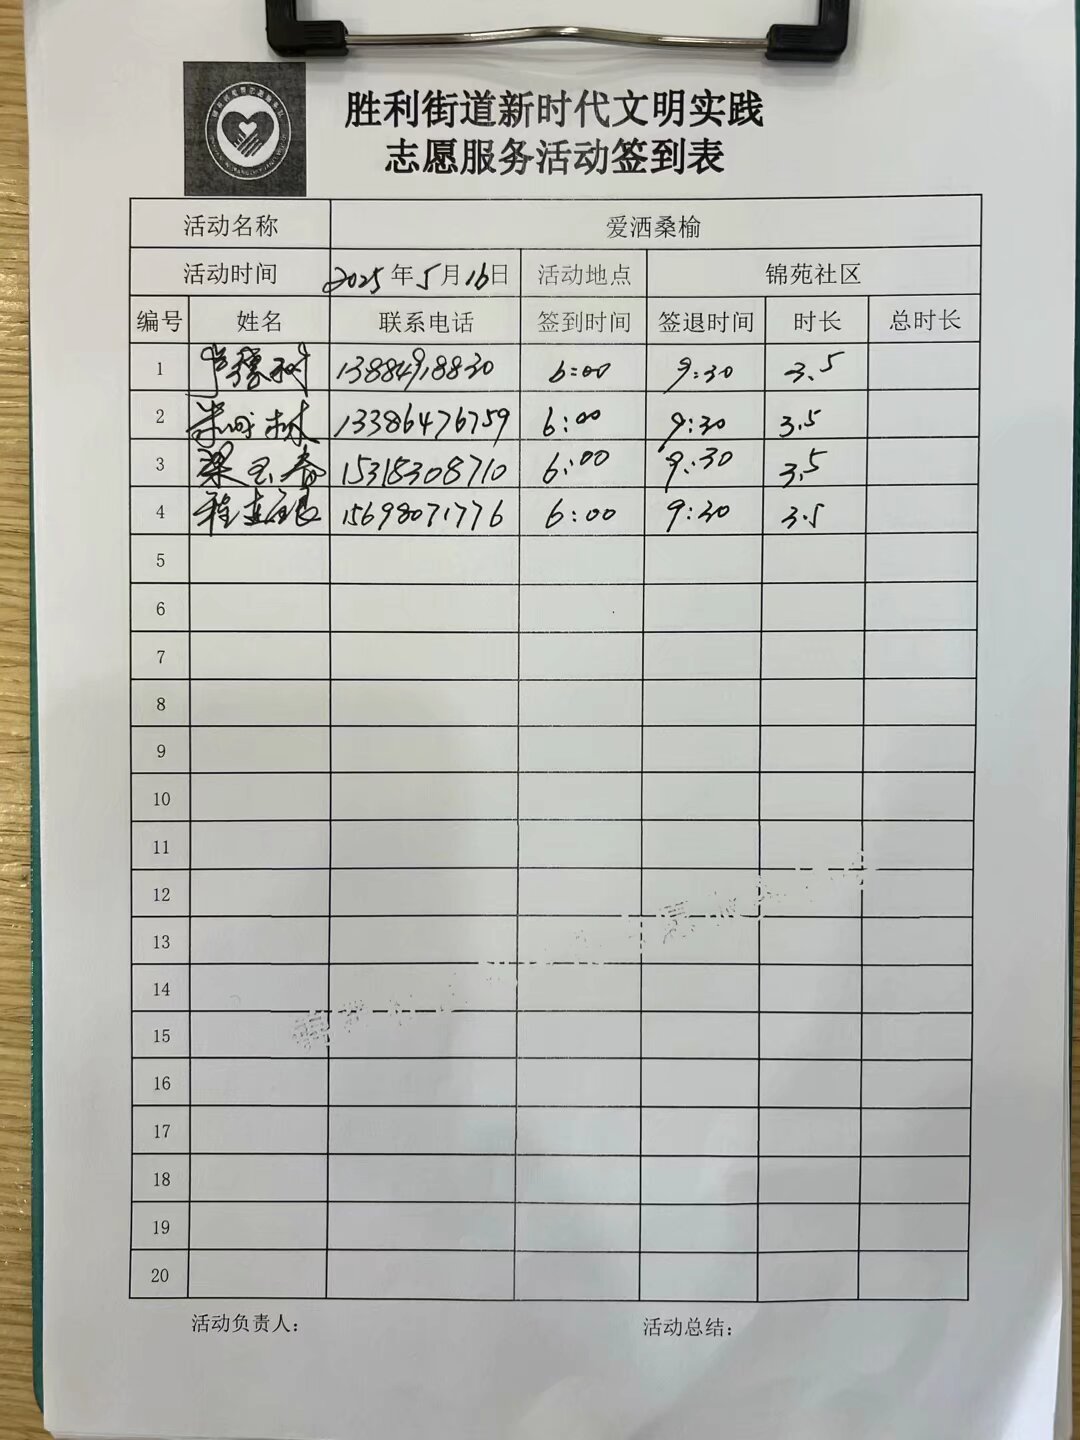 胜利街道新时代文明实践
志愿服务活动签到表
活动名称 爱洒桑榆
活动时间 2025年5月16日 活动地点 锦苑社区
编号 姓名 联系电话 签到时间 签退时间 时长 总时长
1 13884918830 6:00 9:30 3.5
2 林 13386476759 6:00 9:30 3.5
3 梁玉春 15318308710 6:00 9:30 3.5
4 程 15698071776 6:00 9:30 3.5
5
6
7
8
9
10
11
12
13
14
15
16
17
18
19
20
活动负责人: 活动总结: